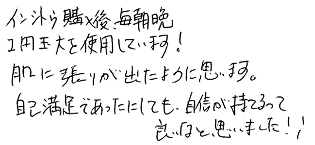 インストから購入後、毎朝晩
1円玉大を使用しています!
肌に張りが出たように思います。
自己満足であったにしても、自信が持てるって
良いなと思いました!!